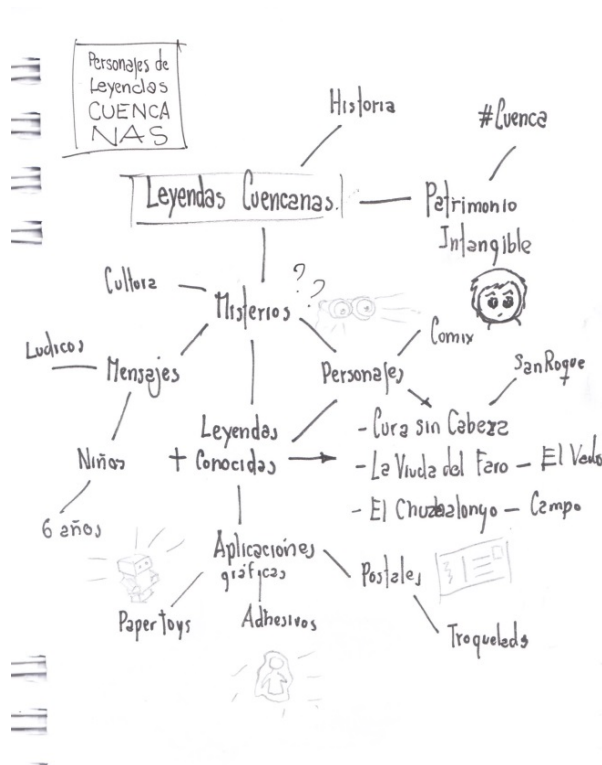 Personajes de
Leyendas
CUENCA
NAS
Historia
#Cuenca
Leyendas Cuencanas.
Patrimonio
Intangible
Cultura
Misterios
??
Comix
Ludicos
Mensajes
Personajes
San Roque
Leyendas
+ Conocidas
- Cura sin Cabeza
- La Viuda del Faro - El Vado
- El Chuzalongo - Campo
Niños
6 años
Aplicaciones
gráficas
Postales
Papertoys
Adhesivos
Troquelads